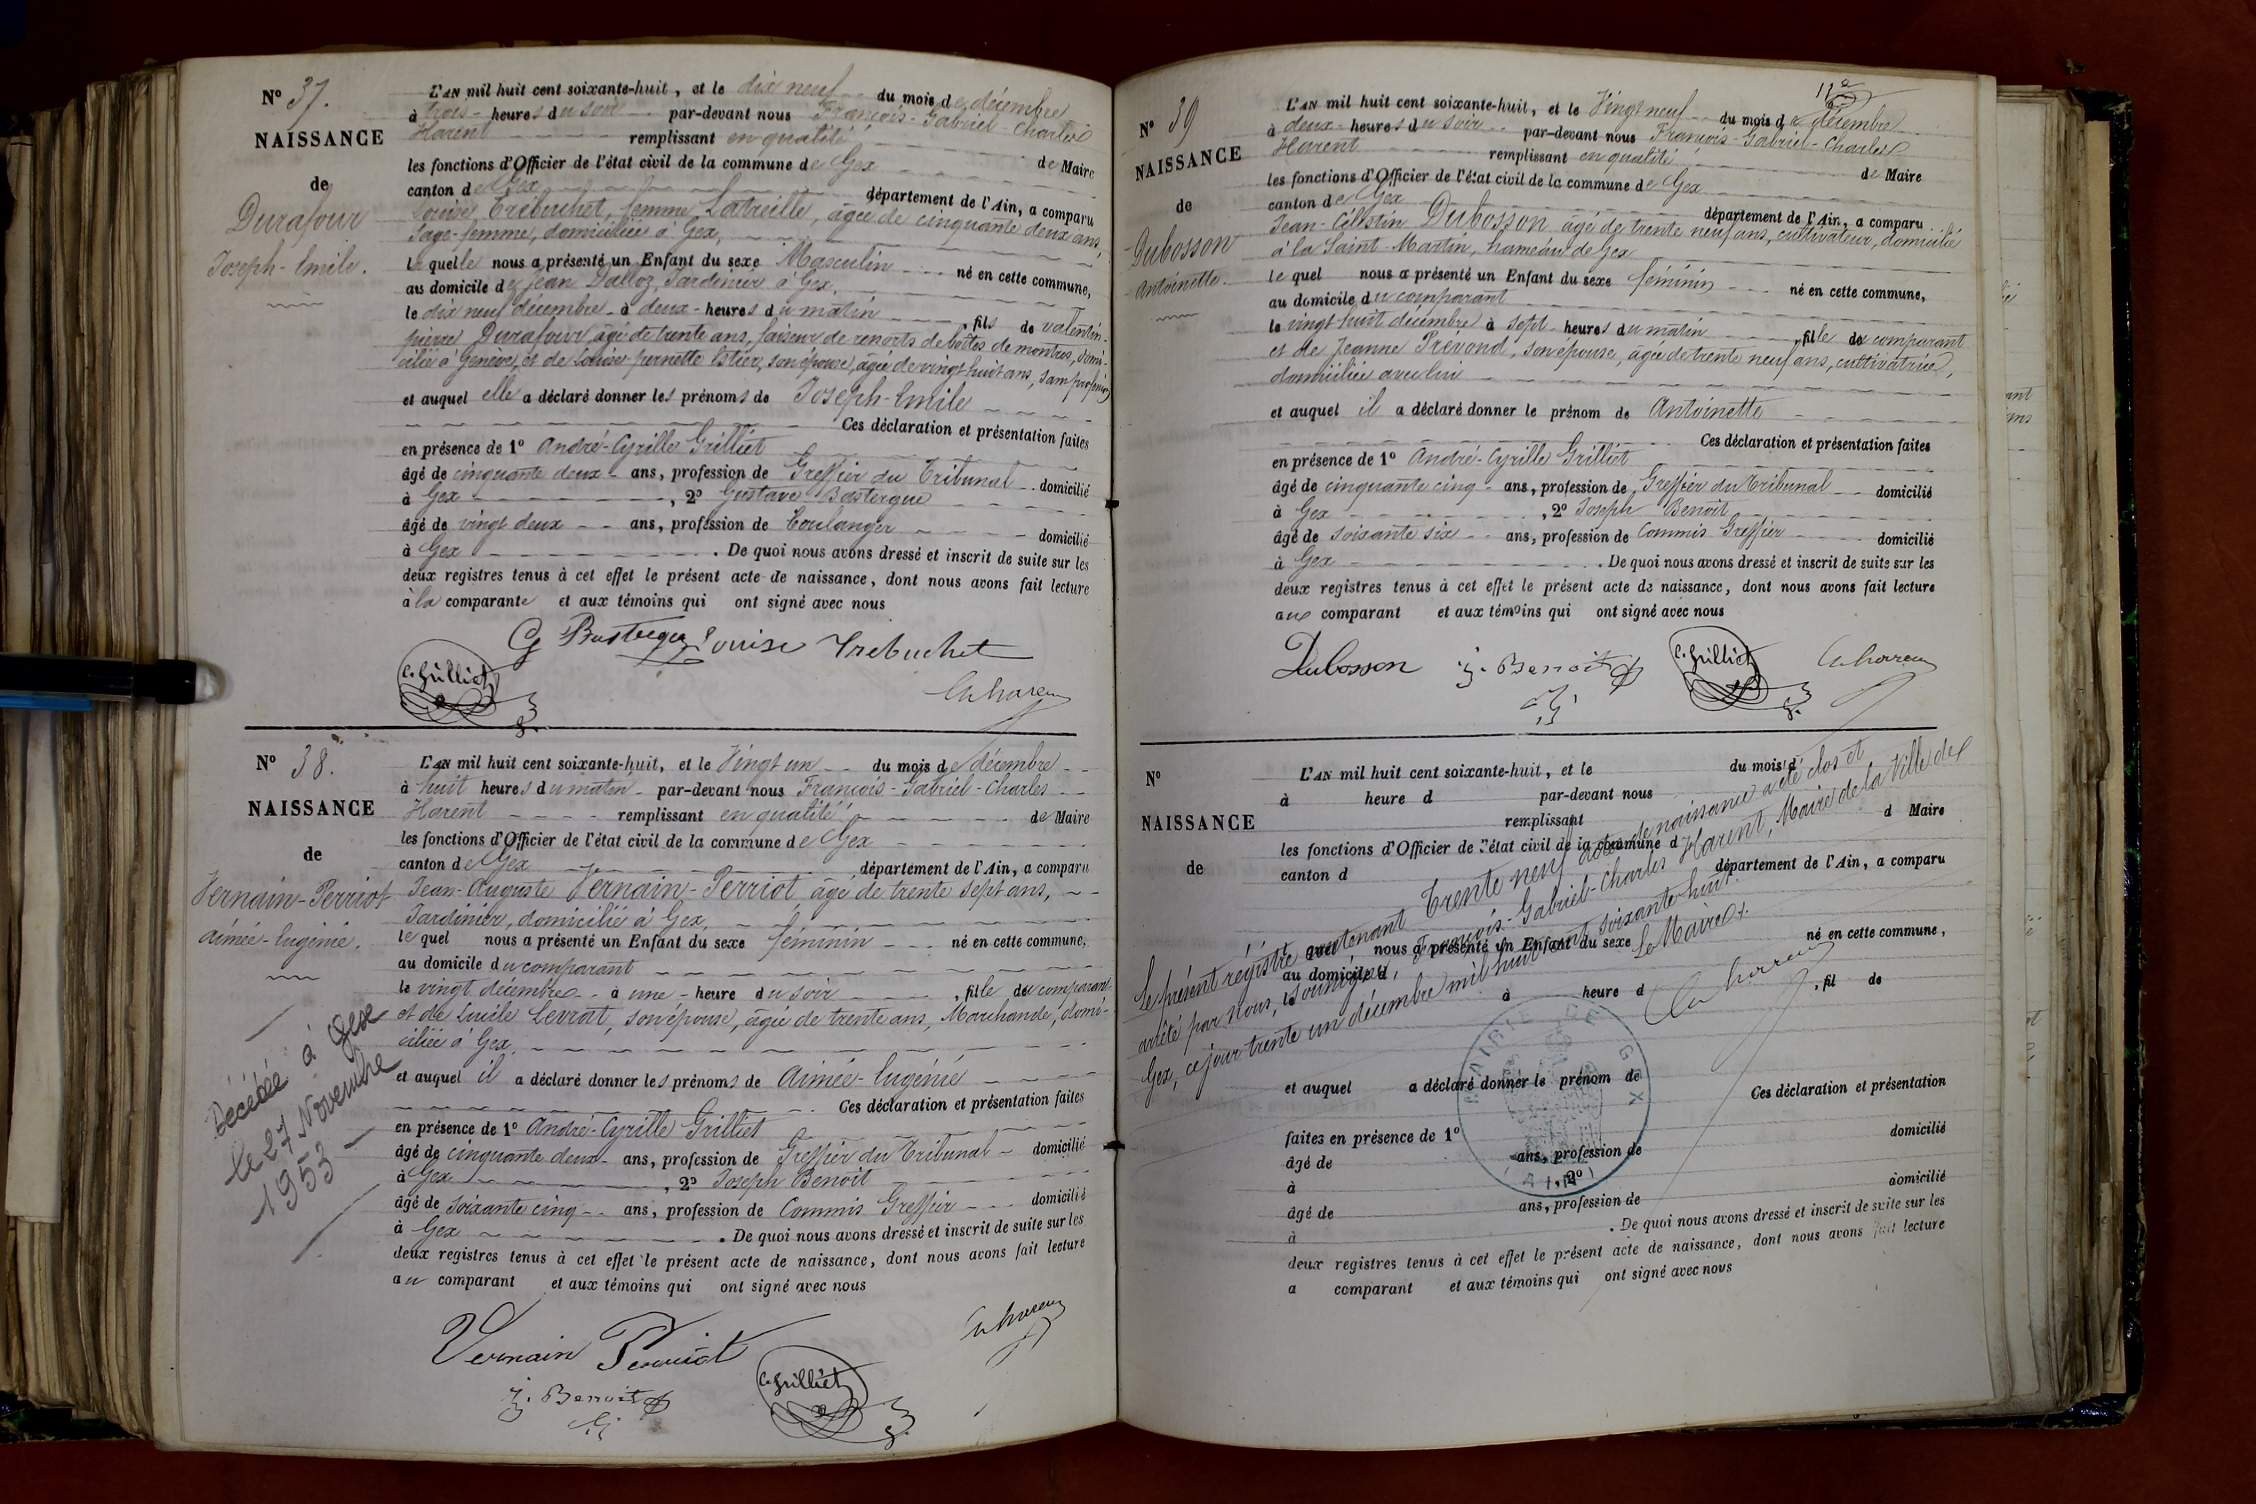 N° 37.
NAISSANCE
de
Durafour
Joseph-Emile.
L'AN mil huit cent soixante-huit, et le dix neuf du mois de décembre
à trois heures du soir par-devant nous François-Gabriel-Charles
Harent remplissant en qualité de Maire
les fonctions d'Officier de l'état civil de la commune de Gex
canton de Gex département de l'Ain, a comparu
Louise Trébuchet, femme Latreille, âgée de cinquante deux ans,
Sage-femme, domiciliée à Gex,
laquelle nous a présenté un Enfant du sexe Masculin né en cette commune,
au domicile de Jean Dalloz, Jardinier à Gex,
le dix neuf décembre à deux heures du matin, fils de Valentin-
pierre Durafour, âgé de trente ans, faiseur de ressorts de boîtes de montres, domi-
cilié à Genève, et de Louise pernette Estier, son épouse, âgée de vingt huit ans, sans profession
et auquel elle a déclaré donner les prénoms de Joseph-Emile
Ces déclaration et présentation faites
en présence de 1° André-Cyrille Grilliet
âgé de cinquante deux ans, profession de Greffier du Tribunal domicilié
à Gex, 2° Gustave Bastergue
âgé de vingt deux ans, profession de boulanger domicilié
à Gex. De quoi nous avons dressé et inscrit de suite sur les
deux registres tenus à cet effet le présent acte de naissance, dont nous avons fait lecture
à la comparante et aux témoins qui ont signé avec nous
G Bastergue Louise Trebuchet
C. Grilliet
Ch harent
N° 38.
NAISSANCE
de
Vernain-Perriot
Aimée-Eugénie.
Décédée à Gex
le 27 Novembre
1953
L'AN mil huit cent soixante-huit, et le Vingt un du mois de décembre
à huit heures du matin par-devant nous François-Gabriel-Charles
Harent remplissant en qualité de Maire
les fonctions d'Officier de l'état civil de la commune de Gex
canton de Gex département de l'Ain, a comparu
Jean-Auguste Vernain-Perriot âgé de trente sept ans,
Jardinier, domicilié à Gex,
lequel nous a présenté un Enfant du sexe féminin né en cette commune,
au domicile du comparant
le vingt décembre à une heure du soir, fille du comparant
et de Lucile Levrat, son épouse, âgée de trente ans, Marchande, domi-
ciliée à Gex,
et auquel il a déclaré donner les prénoms de Aimée-Eugénie
Ces déclaration et présentation faites
en présence de 1° André-Cyrille Grilliet
âgé de cinquante deux ans, profession de Greffier du Tribunal domicilié
à Gex, 2° Joseph Benoit
âgé de soixante cinq ans, profession de Commis Greffier domicilié
à Gex. De quoi nous avons dressé et inscrit de suite sur les
deux registres tenus à cet effet le présent acte de naissance, dont nous avons fait lecture
au comparant et aux témoins qui ont signé avec nous
Vernain Perriot
Ch harent
J. Benoit
C. Grilliet
N° 39
NAISSANCE
de
Dubosson
Antoinette.
L'AN mil huit cent soixante-huit, et le Vingt neuf du mois de décembre
à deux heures du soir par-devant nous François-Gabriel-Charles
Harent remplissant en qualité de Maire
les fonctions d'Officier de l'état civil de la commune de Gex
canton de Gex département de l'Ain, a comparu
Jean-Célestin Dubosson âgé de trente neuf ans, cultivateur, domicilié
à la Saint-Martin, hameau de Gex
lequel nous a présenté un Enfant du sexe féminin né en cette commune,
au domicile du comparant
le vingt huit décembre à sept heures du matin, fille du comparant
et de Jeanne Prévond, son épouse, âgée de trente neuf ans, cultivatrice,
domiciliée avec lui
et auquel il a déclaré donner le prénom de Antoinette
Ces déclaration et présentation faites
en présence de 1° André-Cyrille Grilliet
âgé de cinquante cinq ans, profession de Greffier du tribunal domicilié
à Gex, 2° Joseph Benoit
âgé de soixante six ans, profession de Commis Greffier domicilié
à Gex. De quoi nous avons dressé et inscrit de suite sur les
deux registres tenus à cet effet le présent acte de naissance, dont nous avons fait lecture
au comparant et aux témoins qui ont signé avec nous
Dubosson J. Benoit C. Grilliet Ch harent
N°
NAISSANCE
de
L'AN mil huit cent soixante-huit, et le du mois d
à heure d par-devant nous
remplissant d Maire
les fonctions d'Officier de l'état civil de la commune d
canton d département de l'Ain, a comparu
nous a présenté un Enfant du sexe né en cette commune,
au domicile d
le à heure d, fil de
et auquel a déclaré donner le prénom de
Ces déclaration et présentation
faites en présence de 1° domicilié
âgé de ans, profession de
à, 2°
âgé de ans, profession de domicilié
à. De quoi nous avons dressé et inscrit de suite sur les
deux registres tenus à cet effet le présent acte de naissance, dont nous avons fait lecture
a comparant et aux témoins qui ont signé avec nous
Le présent régistre contenant trente neuf actes de naissance a été clos et
arrêté par Nous, soussigné, François-Gabriel-Charles Harent, Maire de la Ville de
Gex, ce jour trente un décembre mil huit cent soixante huit.
Le Maire
Ch harent
MAIRIE DE GEX
(AIN)